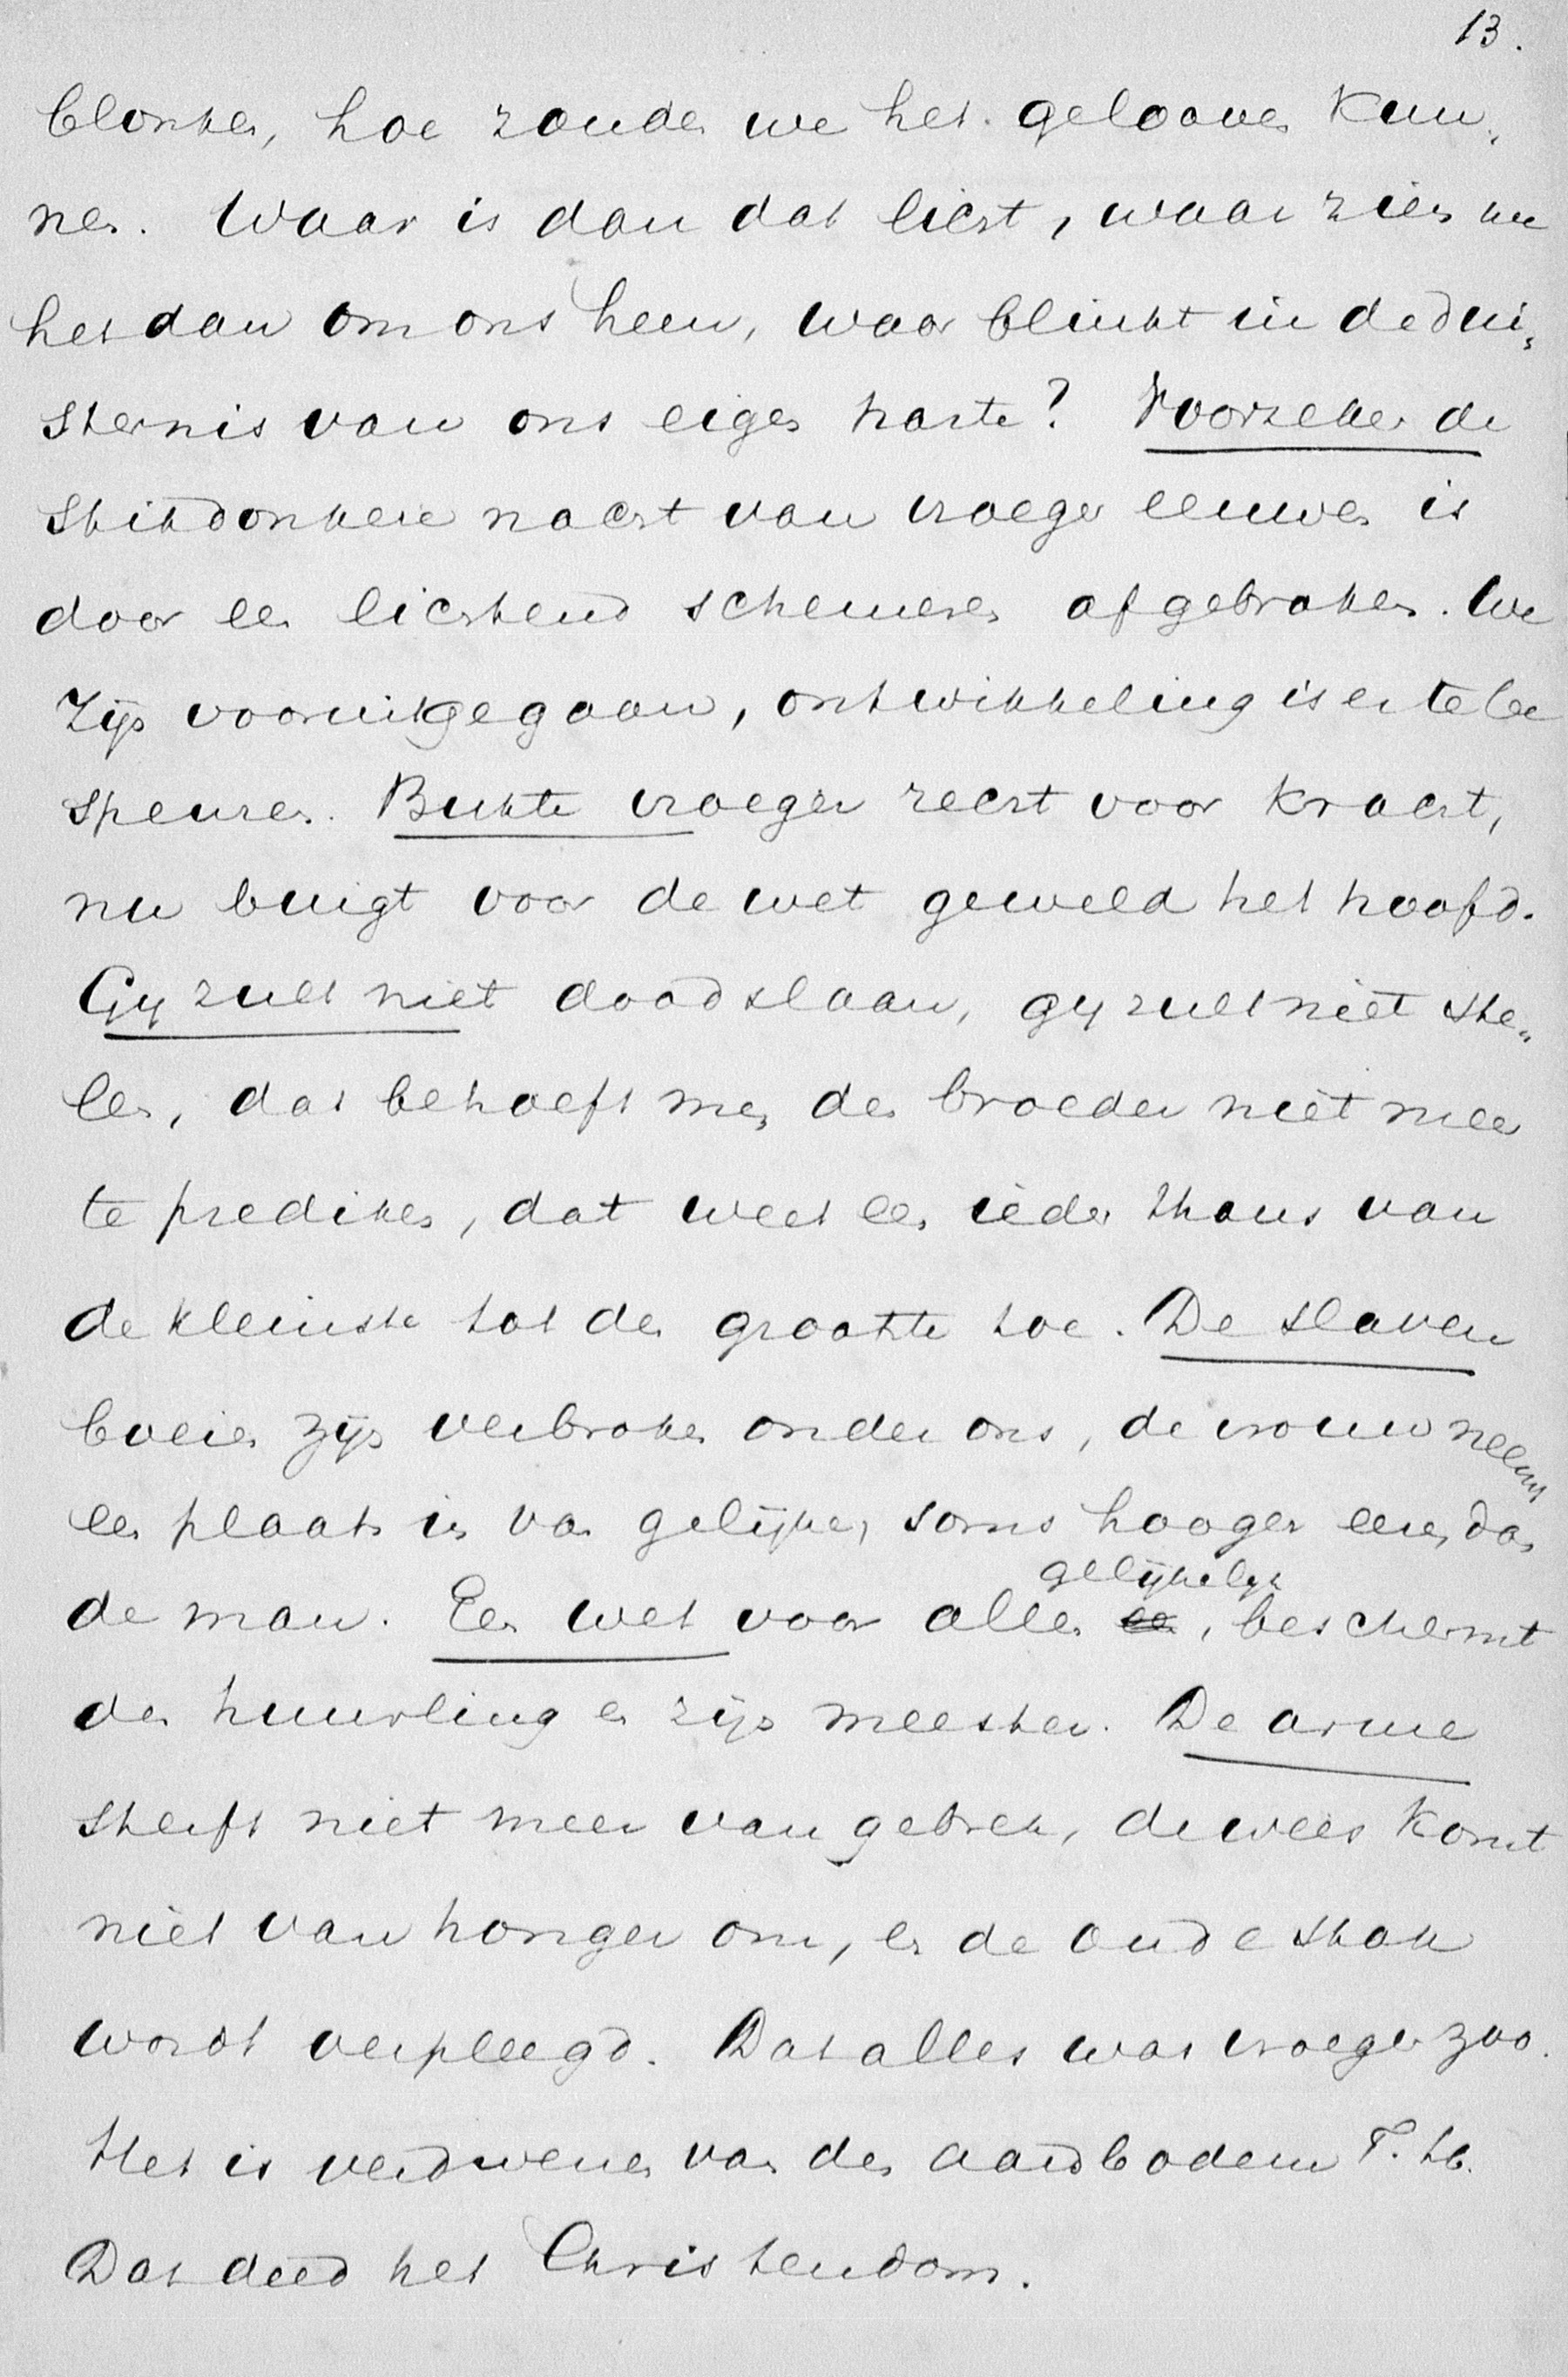 13.
blonken, hoe zouden we het gelooven kun„
nen. Waar is dan dat licht, waar zien we
het dan om ons heen, waar blinkt in de dui„
sternis van ons eigen harte? Voorzeker de
stikdonkere nacht van vroeger eeuwen is
door een lichtend schemeren afgebroken. We
zijn vooruitgegaan, ontwikkeling is er te be
speuren. Bukte vroeger recht voor kracht,
nu buigt voor de wet geweld het hoofd.
Gij zult niet doodslaan, gij zult niet ste„
len, dat behoeft men den broeder niet meer
te prediken, dat weet een ieder thans van
de kleinste tot den grootste toe. De slaven
boeien zijn verbroken onder ons, de vrouw neemt
een plaats in van gelijken, soms hooger eere, dan
de man. Een wet voor allen gelijkelijk, beschermt
den huurling en zijn meester. De arme
sterft niet meer van gebrek, de wees komt
niet van honger om, en de oude stok
wordt verpleegd. Dat alles was vroeger zoo.
Het is verdwenen van den aardbodem T. H.
Dat deed het Christendom.